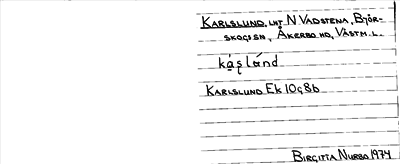 KARLSLUND, LHT N VADSTENA, BJÖR-
SKOGS SN, ÅKERBO HD, VÄSTM. L.
kạ́s̩lánd
KARLSLUND EK 10g8b
BIRGITTA NURBO 1974